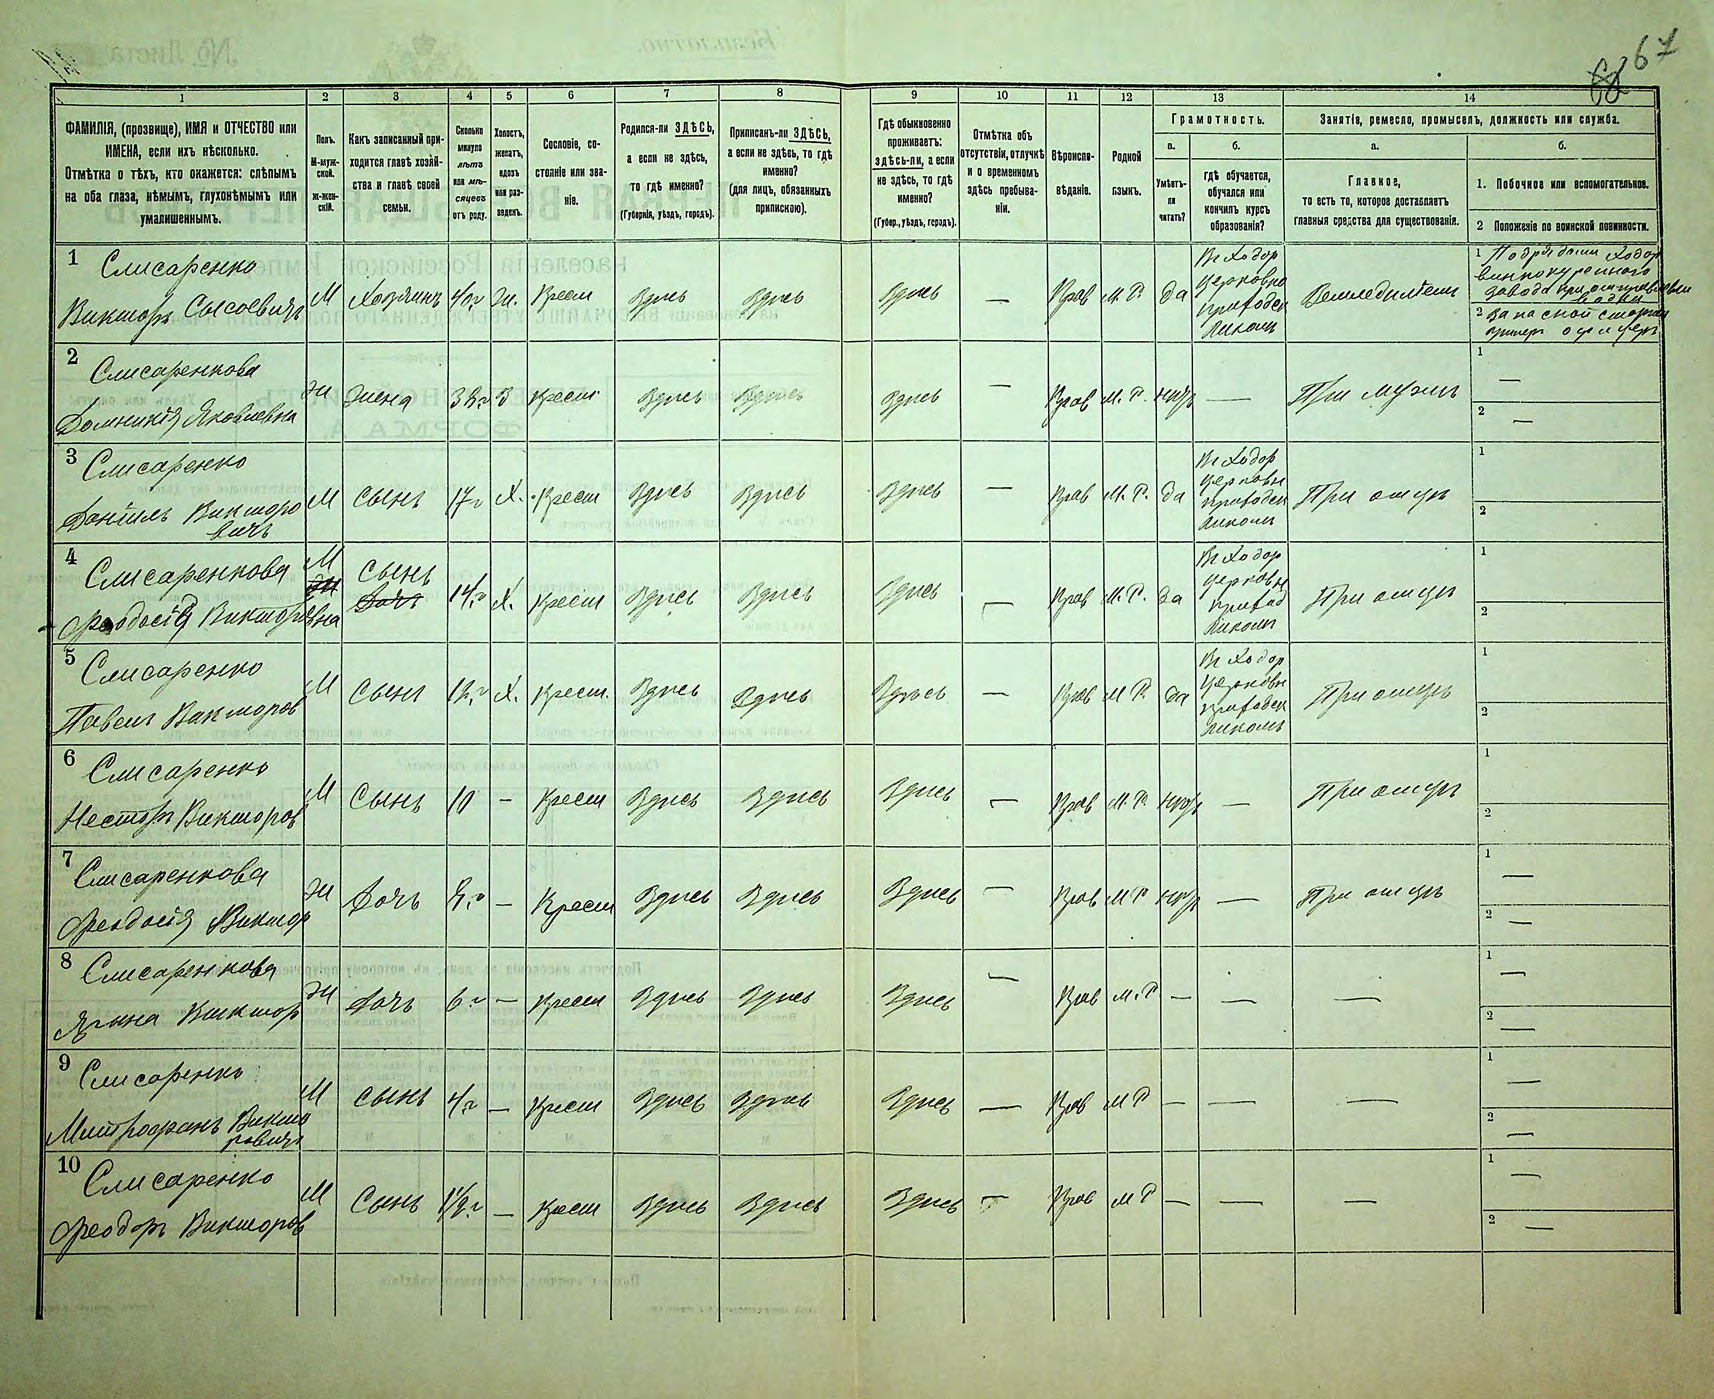 67
1 2 3 4 5 6 7 8 9 10 11 12 13 14
ФАМИЛІЯ, (прозвище), ИМЯ и ОТЧЕСТВО или
ИМЕНА, если ихъ нѣсколько.
Отмѣтка о тѣхъ, кто окажется: слѣпымъ
на оба глаза, нѣмымъ, глухонѣмымъ или
умалишеннымъ.
Полъ.
М-муж-
ской.
Ж-жен-
скій.
Какъ записанный при-
ходится главѣ хозяй-
ства и главѣ своей
семьи.
Сколько
минуло
лѣтъ
или мѣ-
сяцевъ
отъ роду.
Холостъ,
женатъ,
вдовъ
или раз-
веденъ.
Сословіе, со-
стояніе или зва-
ніе.
Родился-ли ЗДѢСЬ,
а если не здѣсь,
то гдѣ именно?
(Губернія, уѣздъ, городъ).
Приписанъ-ли ЗДѢСЬ,
а если не здѣсь, то гдѣ
именно?
(для лицъ, обязанныхъ
припискою).
Гдѣ обыкновенно
проживаетъ:
здѣсь-ли, а если
не здѣсь, то гдѣ
именно?
(Губер., уѣздъ, городъ).
Отмѣтка объ
отсутствіи, отлучкѣ
и о временномъ
здѣсь пребыва-
ніи.
Вѣроиспо-
вѣданіе.
Родной
языкъ.
Грамотность.
а.
Умѣетъ-
ли
читать?
б.
гдѣ обучается,
обучался или
кончилъ курсъ
образованія?
Занятія, ремесло, промыселъ, должность или служба.
а.
Главное,
то есть то, которое доставляетъ
главныя средства для существованія.
б.
1. Побочное или вспомогательное.
2 Положеніе по воинской повинности.
1 Слисаренко
Викторъ Сысоевичъ М Хозяинъ 40 г Ж. Крест Здѣсь Здѣсь Здѣсь — Прав М. Р. да
Въ Ходор
церковно
приходск
школѣ
Земледѣлецъ
1
винокуреннаго
завода при отправленіи
водки
2 Запасной старший
унтеръ офицеръ
2 Слисаренкова
Домникія Яковлевна Ж Жена 38 г З Крест Здѣсь Здѣсь Здѣсь — Прав М. Р. нѣтъ — При мужѣ 1 — 2 —
3 Слисаренко
Даніилъ Викторо
вичъ М Сынъ 17 г Х. Крест Здѣсь Здѣсь Здѣсь — Прав М. Р. да
Въ Ходор
церковн
приходск
школѣ
При отцѣ 1 2
4 Слисаренкова М Ж
Сынъ
Дочь
Феодосія Викторовна 14 г Х. Крест Здѣсь Здѣсь Здѣсь — Прав М. Р. да
Въ Ходор
церковн
приход
школѣ
При отцѣ 1 2
5 Слисаренко
Павелъ Викторов М Сынъ 12 г Х. Крест. Здѣсь Здѣсь Здѣсь — Прав М Р. да
Въ Ходор
церковн
приходск
школѣ
При отцѣ 1 2
6 Слисаренко
Несторъ Викторов М Сынъ 10 — Крест Здѣсь Здѣсь Здѣсь — Прав М. Р. нѣтъ — При отцѣ 1 2
7 Слисаренкова
Феодосія Виктор Ж Дочь 8 г — Крест Здѣсь Здѣсь Здѣсь — Прав М Р нѣтъ — При отцѣ 1 — 2 —
8 Слисаренкова
Виктор Ж Дочь 6 г — Крест Здѣсь Здѣсь Здѣсь — Прав М. Р — — — 1 — 2 —
9 Слисаренко
Митрофанъ Викто
ровичъ М Сынъ 4 г — Крест Здѣсь Здѣсь Здѣсь — Прав М Р — — — 1 — 2 —
10 Слисаренко
Феодоръ Викторов М Сынъ 1½ г — Крест Здѣсь Здѣсь Здѣсь — Прав М Р — — — 1 — 2 —